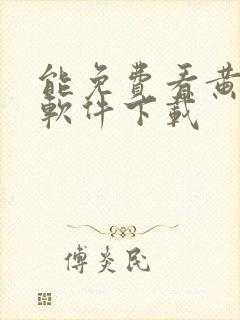 能免費看黄
軟件下載
傅炎民